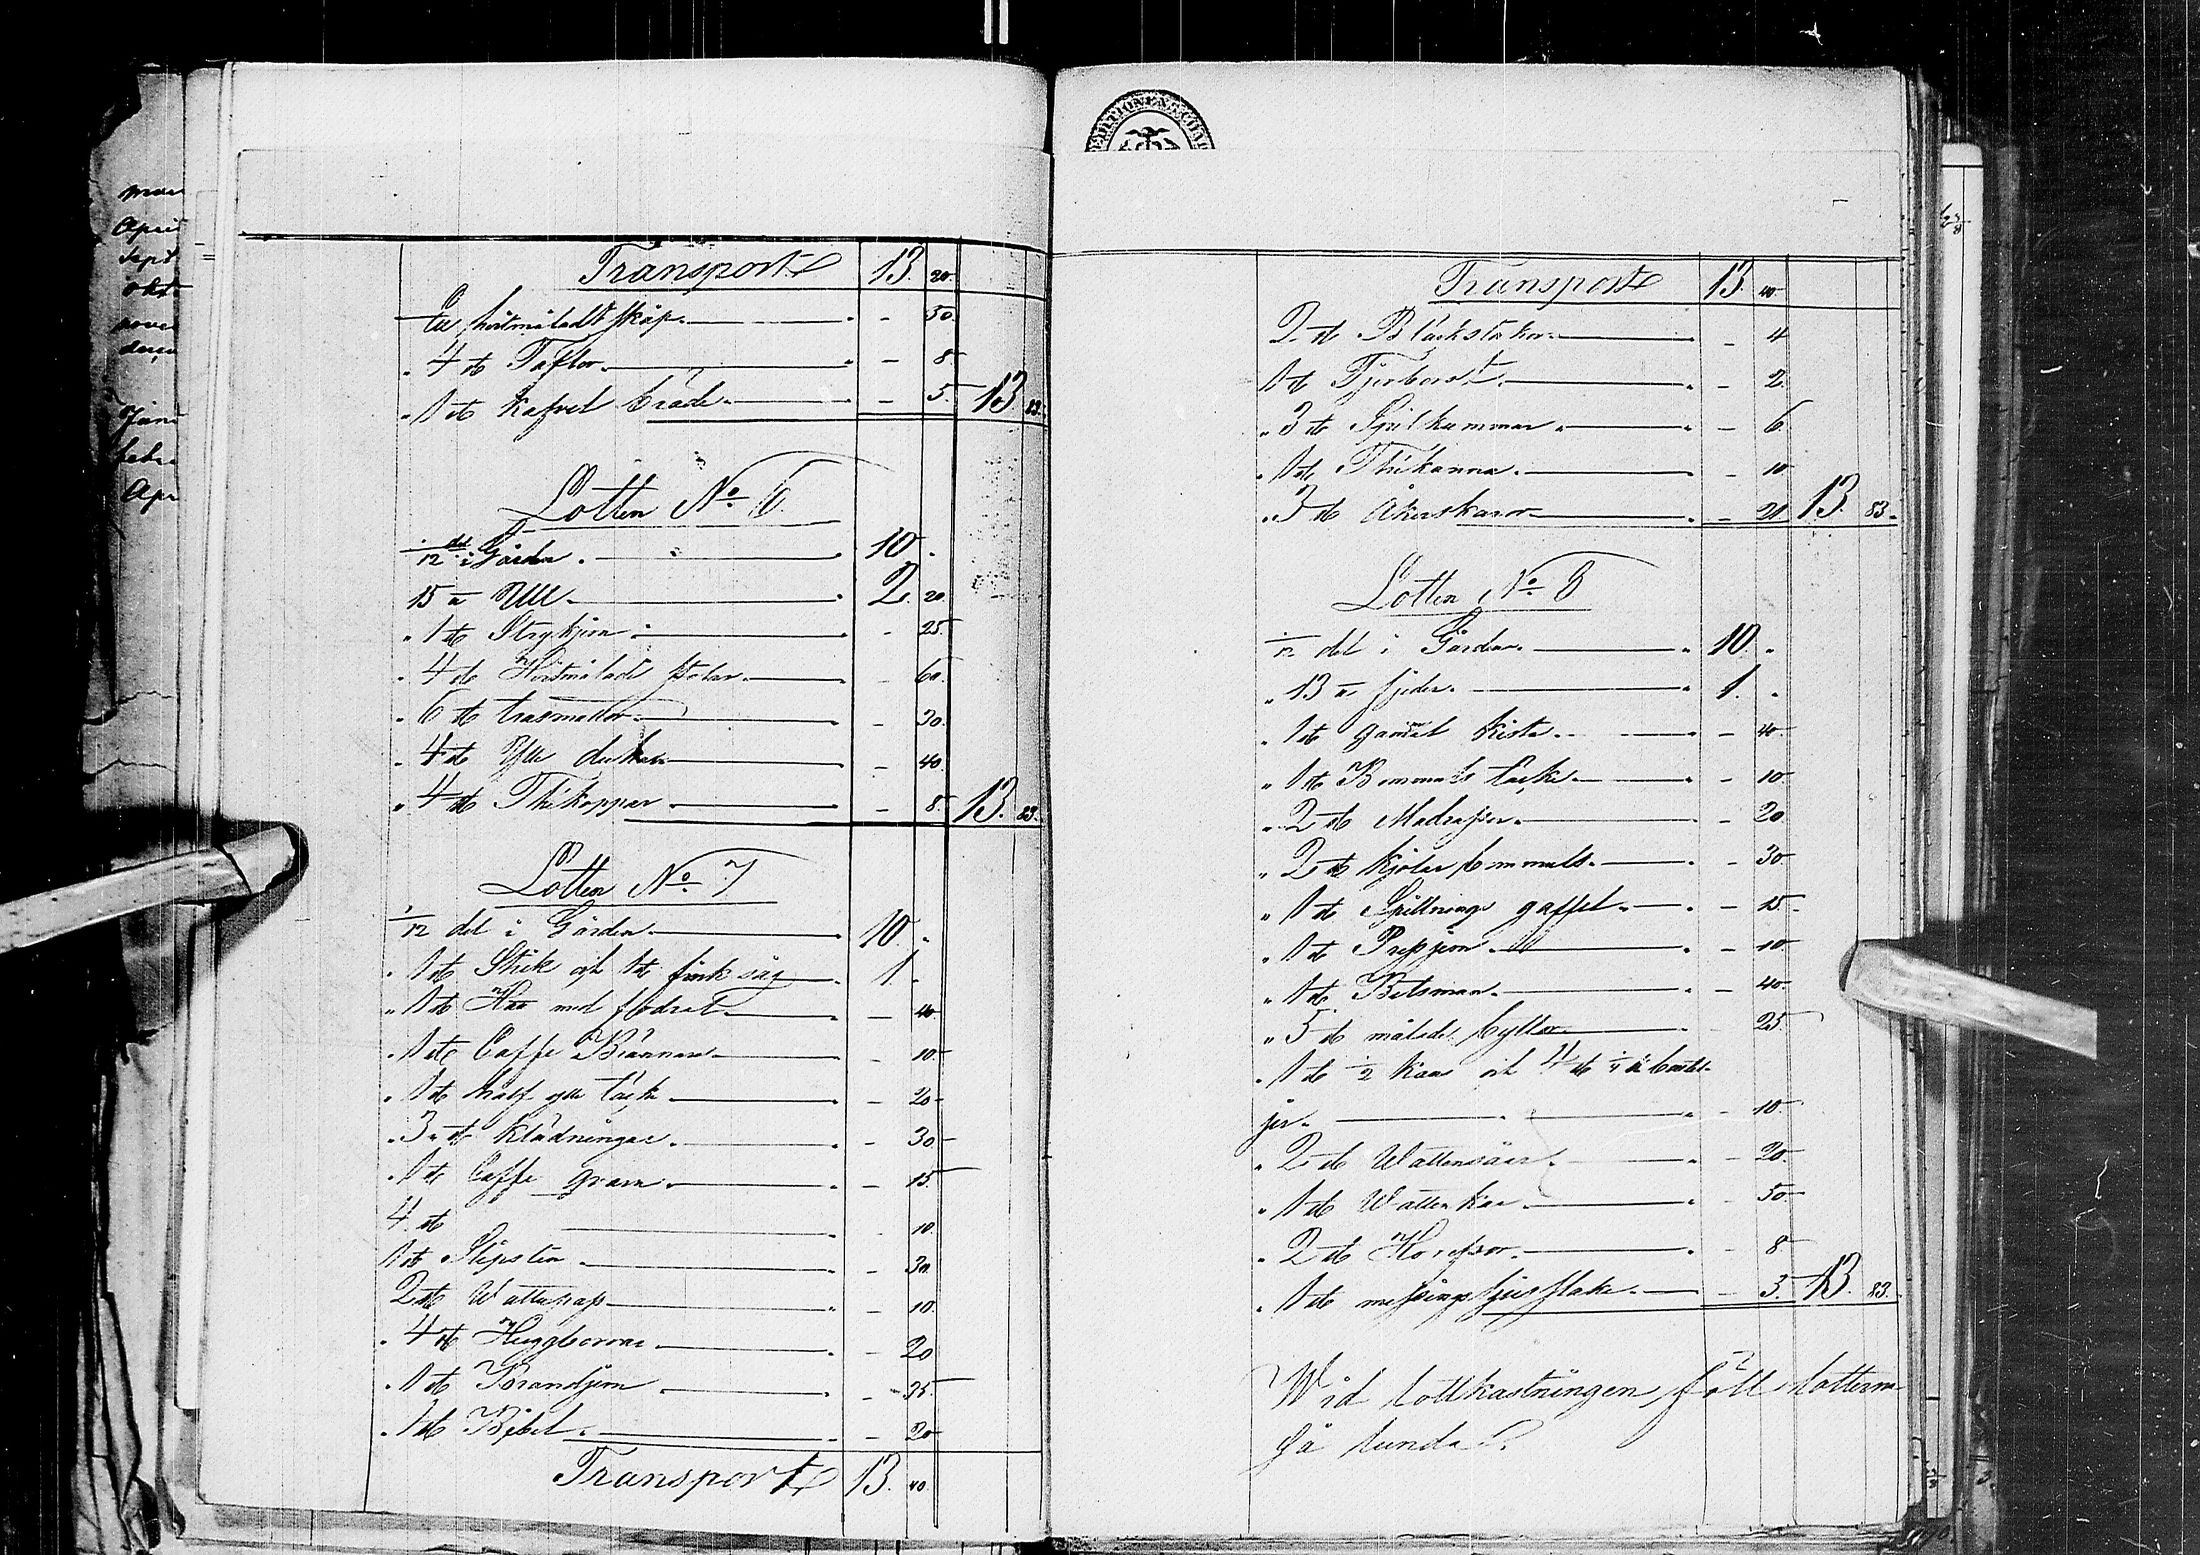 Transport 13. 20.
Ett hvitmåladt skåp. - 50.
" 4 st Taflor. - 8.
" 1 st Kafvel bräde. - 5. 13. 83.
Lotten No 6
1/12 del i Gården. 10.
15 Ull 2. 20
" 1 st Strykjern - 25.
" 4 st Hvitmålade stolar. - 60.
" 6 st trasmattor. - 30.
" 4 st Ylle dukar - 40.
" 4 st Thékoppar - 8. 13. 83.
Lotten No 7
1/12 del i Gården. 10.
" 1 st Stick och 1 st såg 1.
" 1 st med - 40.
" 1 st Caffe Brännare - 10.
" 1 st half ylle täcke - 20.
" 3 st Klädningar. - 30.
" 1 st Caffe qvarn. - 15.
4 st - 10.
1 st Slipsten - 30.
2 st Wattu - 10.
" 4 st Huggborrar - 20
" 1 st Brandjern - 35.
" 1 st Bibel. - 20.
Transport 13. 40.
Transport 13. 40.
2 st Bläckstakar. - 4
1 st Fjerborst. - 2.
" 3 st Spilkummar. - 6.
" 1 st Thékanna. - 10
" 3 st Åkerskaror - 21 13. 83.
Lotten No 8
1/12 del i Gården. 10.
" 13 fjeder. 1.
" 1 st gammal Kista. - 40.
" 1 st Bommuls täcke. - 10.
" 2 st Madrasser. - 20.
" 2 st kjolar bommuls. - 30
" 1 st Spillnings gaffel. - 15.
" 1 st - 10
" 1 st Betsman. - 40.
" 5 st målade byttor - 25
" 1 st 1/2 Kans och 4 st 1/4 butel-
jer. - 10.
" 2 st Wattensåar. - 20.
" 1 st Watten Kar - 50
" 2 st - 8
" 1 st messings ljusstake. - 3. 13. 83.
Wid lottkastningen föll lotterna
så lunda.